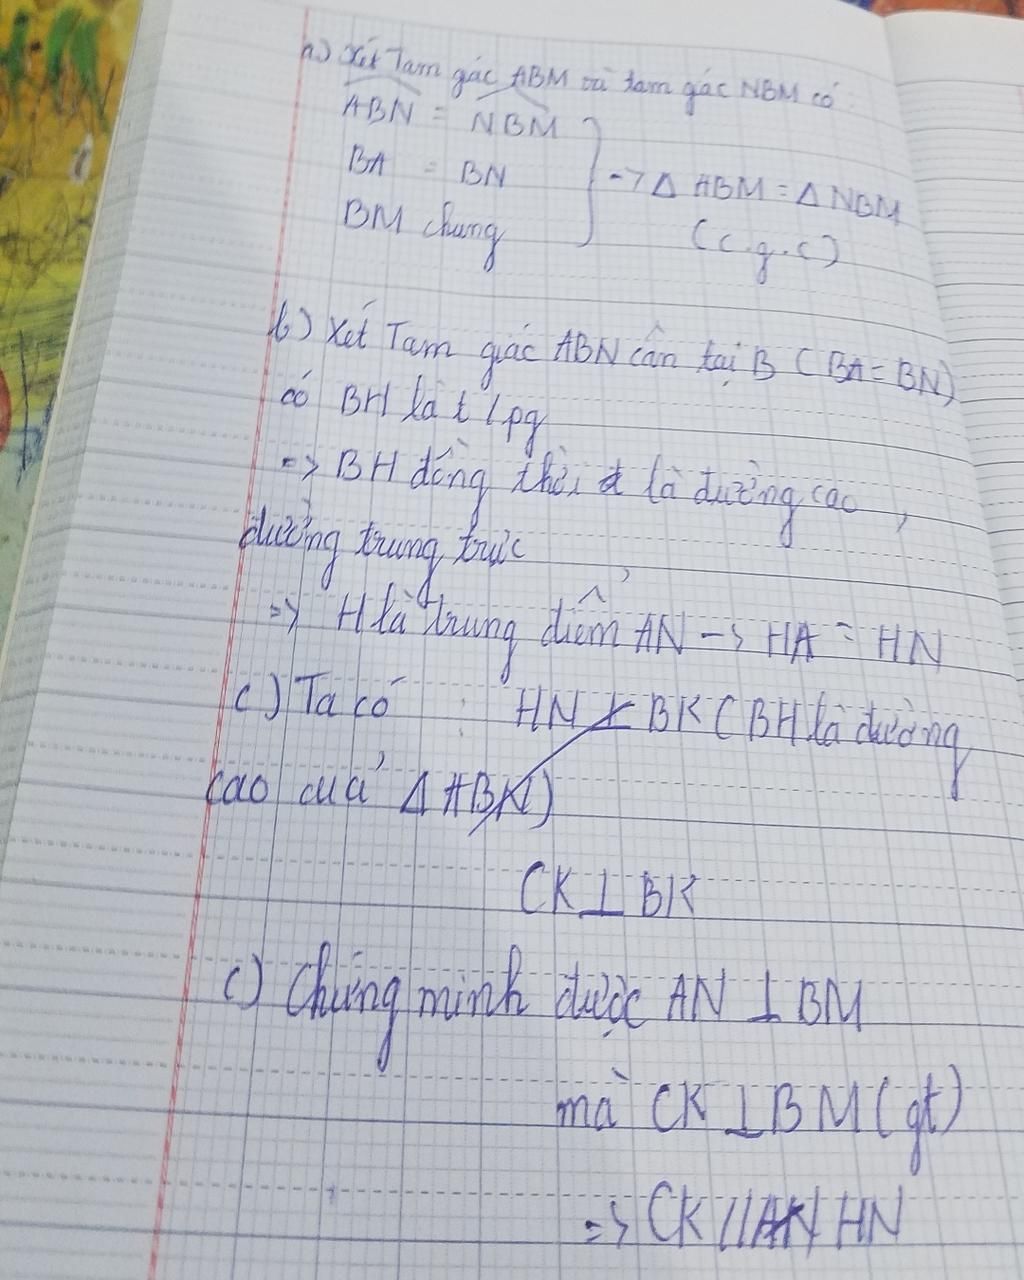 a) Xét Tam gác ABM và tam gác NBM có
ABN = NBM
BA = BN
BM chung
-> Δ ABM = Δ NBM
(c.g.c)
b) Xét Tam giác ABN cân tại B (BA = BN)
có BH là t/pg
=> BH đồng thời là đường cao,
đường trung trực
=> H là trung điểm AN -> HA = HN
c) Ta có : HN ⊥ BK (BH là đường
cao của Δ ABN)
CK ⊥ BK
c) Chứng minh được AN ⊥ BM
mà CK ⊥ BM (gt)
=> CK // HN